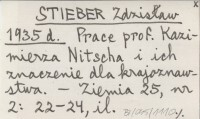 STIEBER Zdzisław
1935 d. Prace prof. Kazi-
mierza Nitscha i ich
znaczenie dla krajoznaw-
stwa. – Ziemia 25, nr
2: 22-24, il.